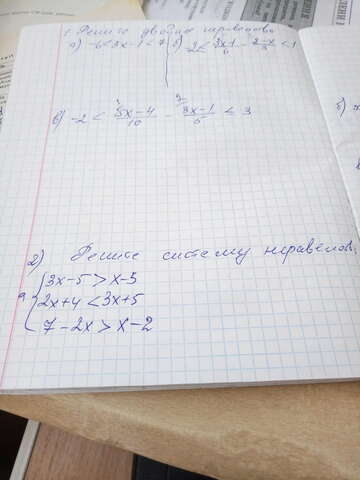 1. Решите двойные неравенства
а) -6 < 3x - 1 < 7 б) -2 < 3x-1/6 - 2-x/3 < 1
в) -2 < 5x-4/10 - 3x-1/5 < 3
2) Решите систему неравенств.
а) 3x - 5 > x - 3
2x + 4 < 3x + 5
7 - 2x > x - 2
б)